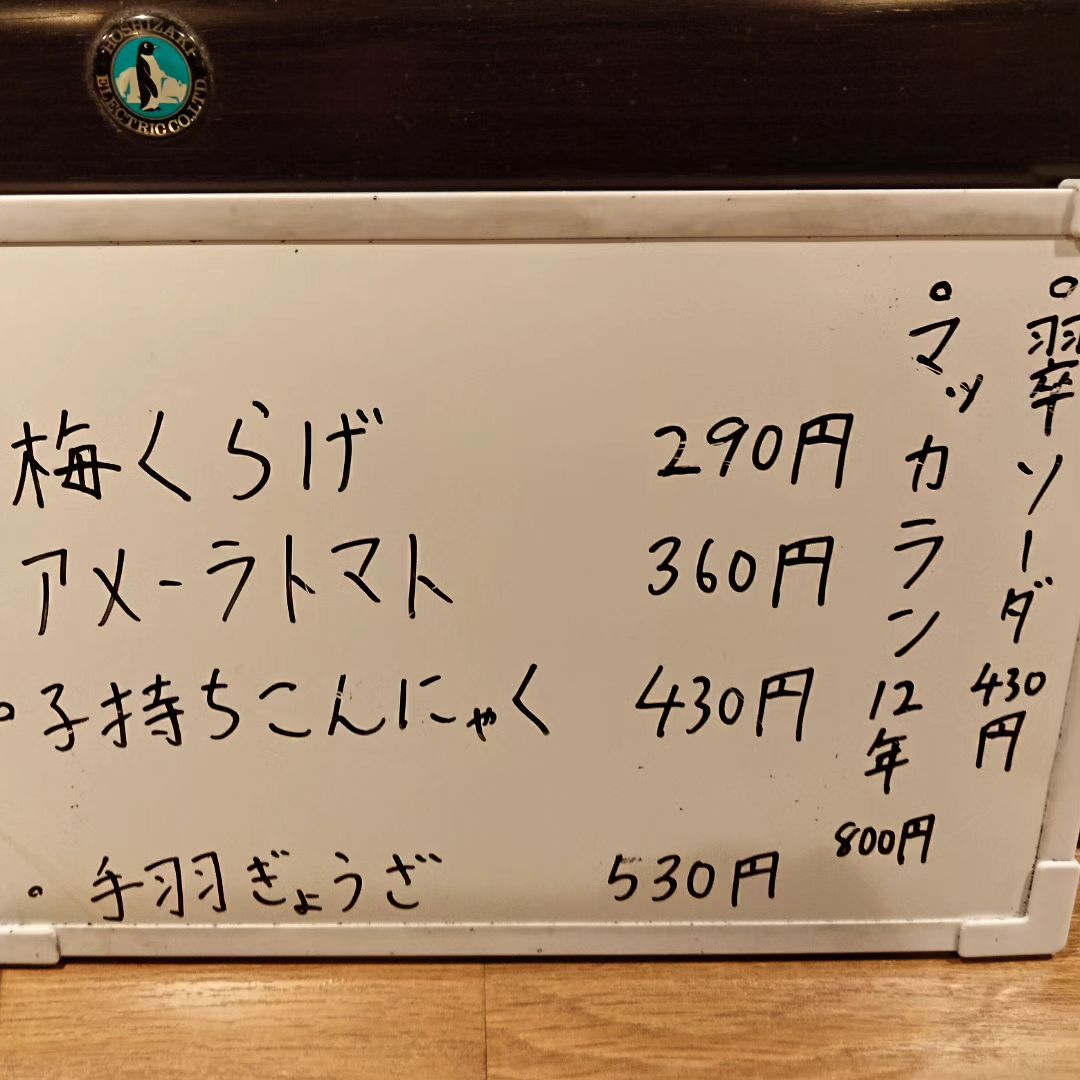 HOSHIZAKI ELECTRIC CO.,LTD.
翠ソーダ 430円
マッカラン 12年 800円
梅くらげ 290円
アメーラトマト 360円
子持ちこんにゃく 430円
手羽ぎょうざ 530円